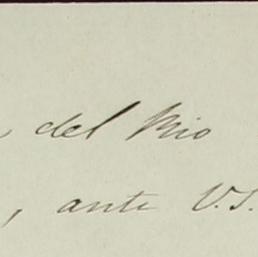 del Rio
, ante V.S.